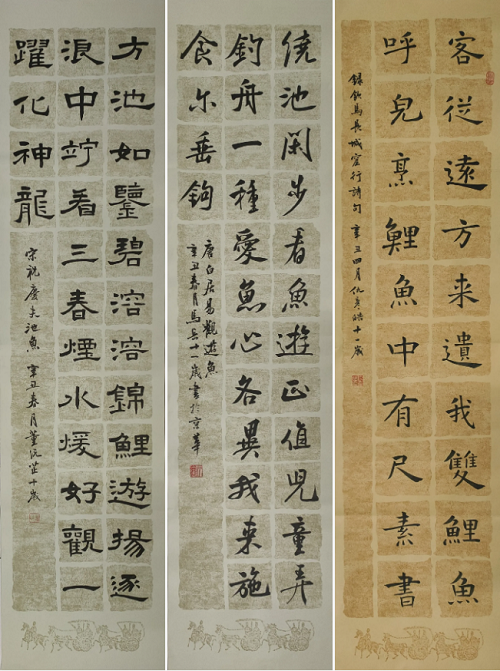 客從遠方来遺我雙鯉魚
呼兒烹鯉魚中有尺素書
録飲馬長城窟行詩句 辛丑四月 十一歲
繞池閑步看魚遊正值児童弄
釣舟一種愛魚心各異我来施
食尔垂鈎
唐白居易觀遊魚
辛丑春月馬 十一歲書於京華
方池如鑒碧溶溶錦鯉遊揚逐
浪中竚看三春煙水煖好觀一
躍化神龍
宋祝慶夫池魚 辛丑春月董沅芷十歲